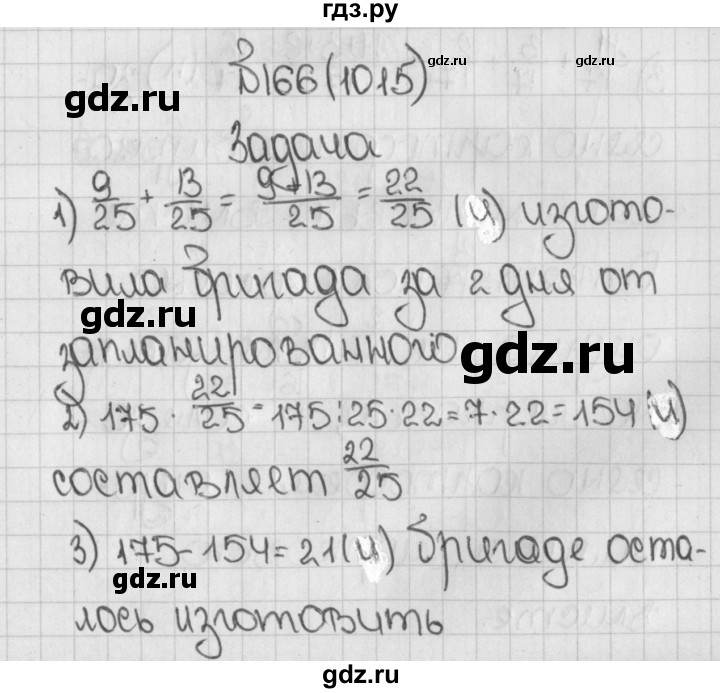 гдз.ру
№166(1015)
gdz.ru
gdz.ru
gdz.ru
Задача
1) 9/25 + 13/25 = 9+13/25 = 22/25 (ч) изгото-
вила бригада за 2 дня от
gdz.ru
запланированного
gdz.ru
2) 175 · 22/25 = 175:25·22=7·22=154(ч)
gdz.ru
составляет 22/25
3) 175-154=21(ч) бригаде оста-
gdz.ru
gdz.ru
лось изготовить
gdz.ru